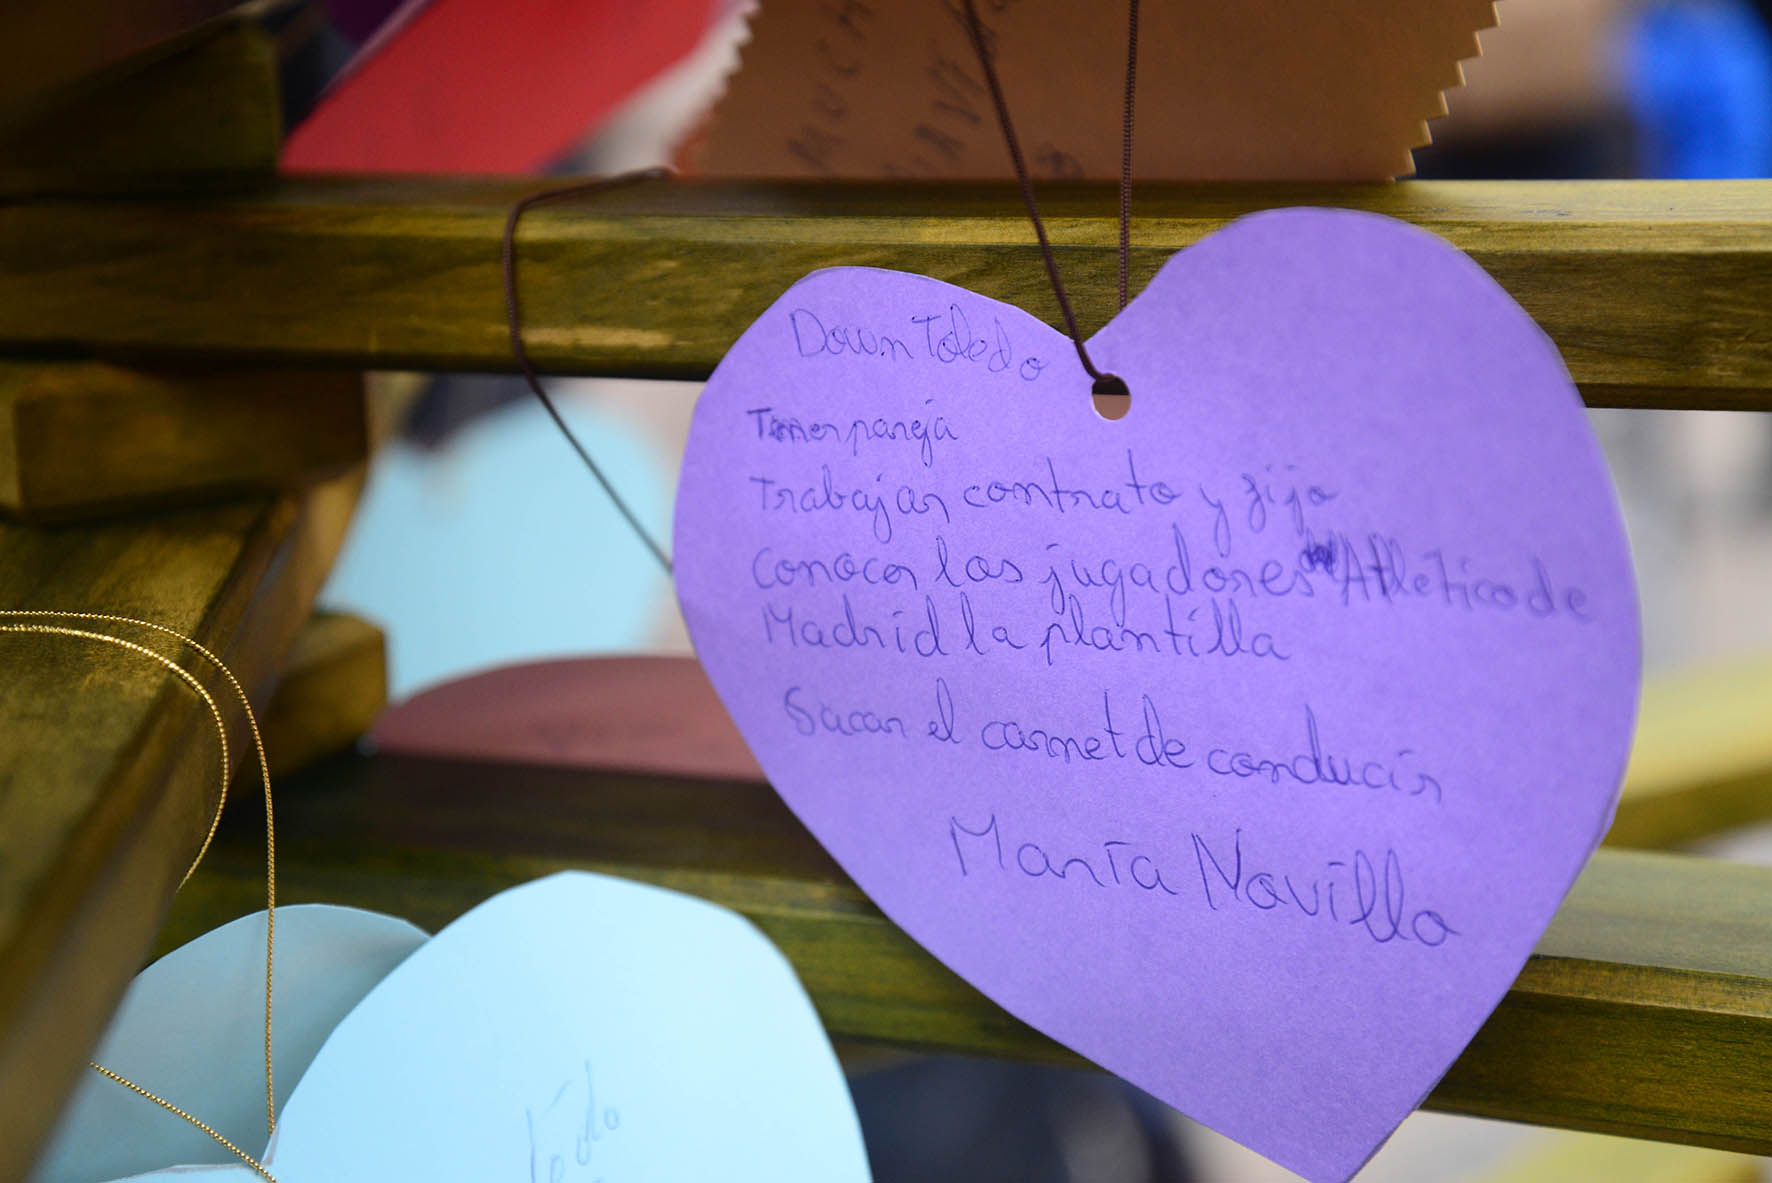 Down Toledo
Tener pareja
Trabajar contrato y fijo
conocer los jugadores Atletico de
Madrid la plantilla
Sacar el carnet de conducir
María Novillo
Todo